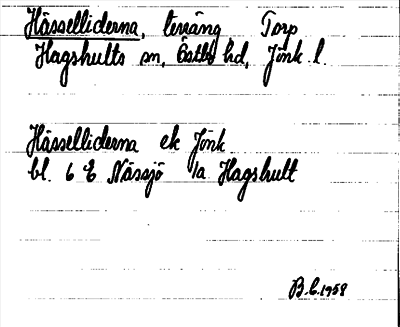 Hässelliderna, terräng Torp
Hagshults sn, Östbo hd, Jönk. l.
Hässelliderna ek Jönk
bl. 6 E Nässjö 1a Hagshult
B.C. 1958